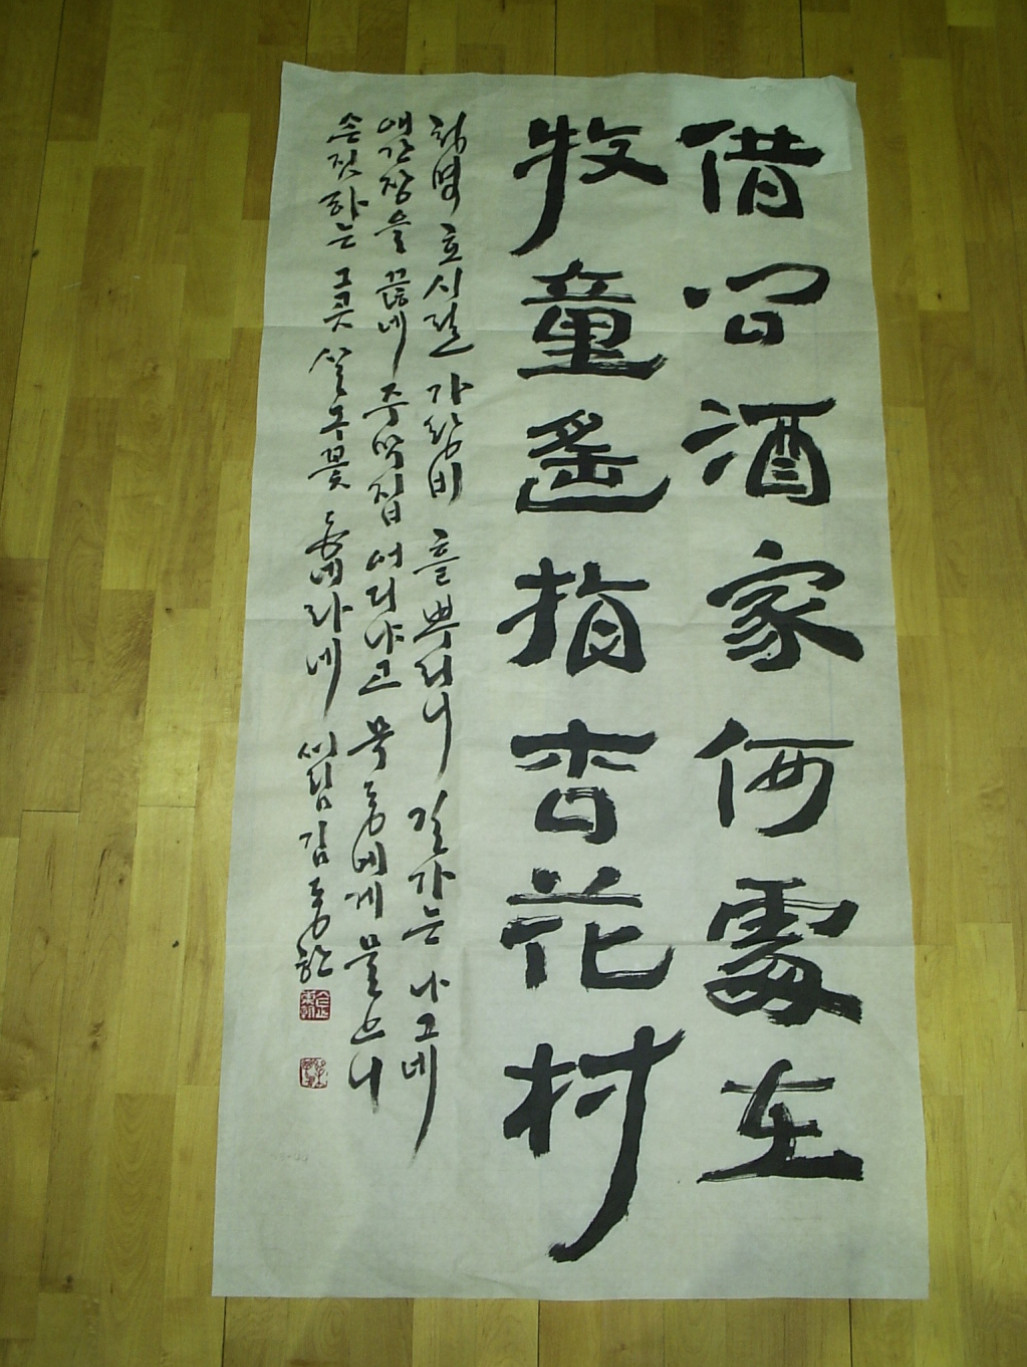 借問酒家何處在
牧童遙指杏花村
청명 호시절 가랑비 흩뿌리니 길가는 나그네
애간장을 끊네 주막집 어디냐고 목동에게 물으니
손짓하는 그곳 살구꽃 동네라네